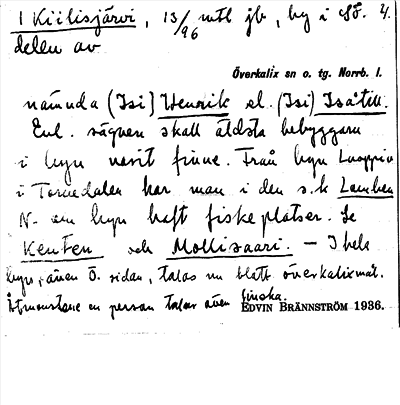 1 Kiilisjärvi, 13/96 mtl jb, by i sö. 4.
delen av
Överkalix sn o. tg. Norrb. l.
nämnda (Isi) Henrik el. (Isi) Isätill.
Enl. sägnen skall äldsta bebyggaren
i byn varit finne. Från byn Luoppio
i Tornedalen har man i den s.k Lamben
N. om byn haft fiskeplatser. Se
Kenten och Mollisaari. — I hela
byn, även Ö. sidan, talas nu blott överkalixmål.
Åtminstone en person talar även finska.
EDVIN BRÄNNSTRÖM 1936.